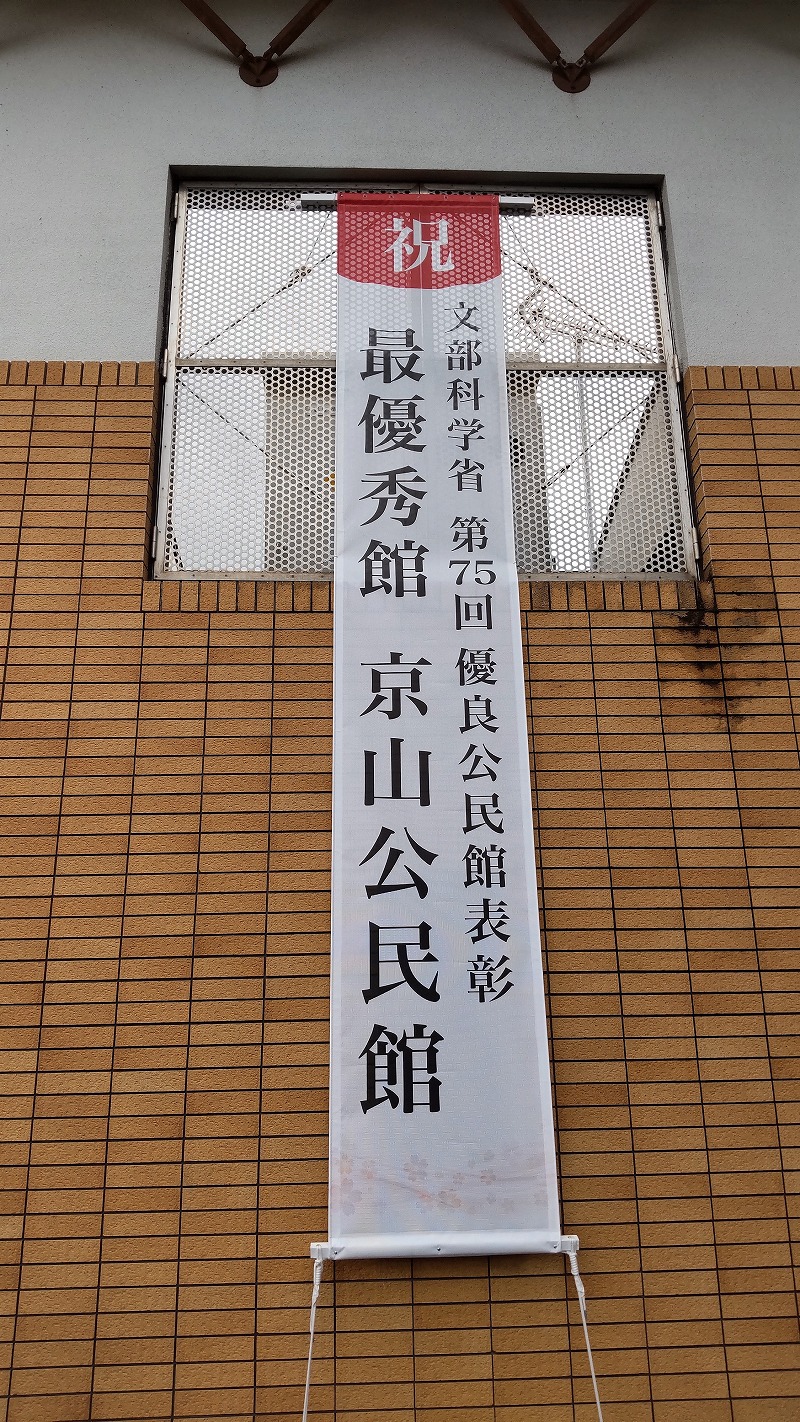 祝
文部科学省 第75回 優良公民館表彰
最優秀館 京山公民館